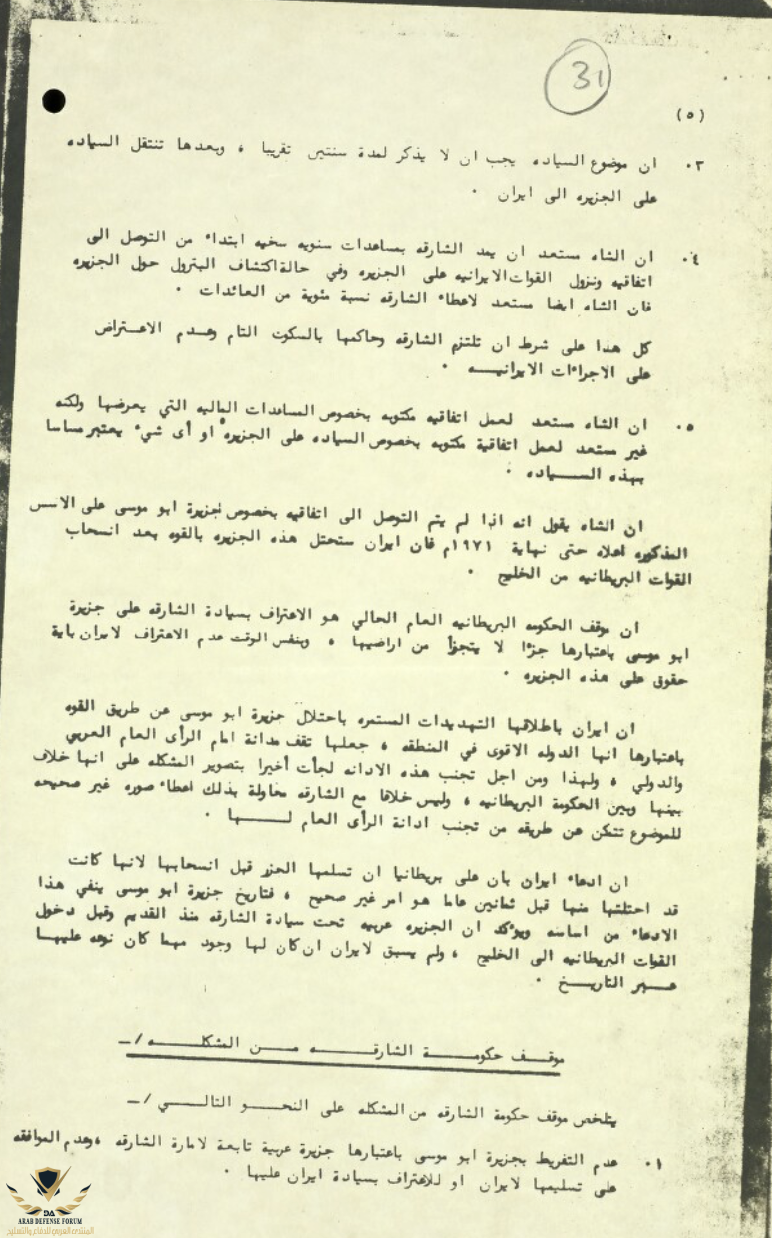 31
(٥)
٠٣ ان موضوع السياده يجب ان لا يذكر لمدة سنتين تقريبا ، وبعدها تنتقل السياده
على الجزيره الى ايران ٠
٠٤ ان الشاه مستعد ان يمد الشارقه بمساعدات سنويه سخيه ابتداء من التوصل الى
اتفاقيه ونزول القوات الايرانيه على الجزيره وفي حالة اكتشاف البترول حول الجزيره
فان الشاه ايضا مستعد لاعطاء الشارقه نسبة مئوية من العائدات ٠
كل هذا على شرط ان تلتزم الشارقه وحاكمها بالسكوت التام وعدم الاعتراض
على الاجراءات الايرانيه ٠
٠٥ ان الشاه مستعد لعمل اتفاقيه مكتوبه بخصوص المساعدات الماليه التي يعرضها ولكنه
غير مستعد لعمل اتفاقية مكتوبه بخصوص السياده على الجزيره او أى شيء يعتبر مساسا
بهذه السياده ٠
ان الشاه يقول انه اذا لم يتم التوصل الى اتفاقيه بخصوص جزيرة ابو موسى على الاسس
المذكوره اعلاه حتى نهاية ١٩٧١م فان ايران ستحتل هذه الجزيره بالقوه بعد انسحاب
القوات البريطانيه من الخليج ٠
ان موقف الحكومه البريطانيه العام الحالي هو الاعتراف بسيادة الشارقه على جزيرة
ابو موسى باعتبارها جزءا لا يتجزأ من اراضيها ، وبنفس الوقت عدم الاعتراف لايران باية
حقوق على هذه الجزيره ٠
ان ايران باطلاقها التهديدات المستمره باحتلال جزيرة ابو موسى عن طريق القوه
باعتبارها انها الدوله الاقوى في المنطقه ، جعلها تقف مدانة امام الرأى العام العربي
والدولي ، ولهذا ومن اجل تجنب هذه الادانه لجأت أخيرا بتصوير المشكله على انها خلاف
بينها وبين الحكومة البريطانيه ، وليس خلافا مع الشارقه محاولة بذلك اعطاء صوره غير صحيحه
للموضوع تتمكن عن طريقه من تجنب ادانة الرأى العام لها ٠
ان ادعاء ايران بان على بريطانيا ان تسلمها الجزر قبل انسحابها لانها كانت
قد احتلتها منها قبل ثمانين عاما هو امر غير صحيح ، فتاريخ جزيرة ابو موسى ينفي هذا
الادعاء من اساسه ويؤكد ان الجزيره عربيه تحت سيادة الشارقه منذ القديم وقبل دخول
القوات البريطانيه الى الخليج ، ولم يسبق لايران ان كان لها وجود مهما كان نوعه عليها
عبر التاريخ ٠
موقف حكومة الشارقه من المشكله /ـ
يتلخص موقف حكومة الشارقه من المشكله على النحو التالي /ـ
٠١ عدم التفريط بجزيرة ابو موسى باعتبارها جزيرة عربية تابعة لامارة الشارقه ، وعدم الموافقه
على تسليمها لايران او للاعتراف بسيادة ايران عليها ٠
DA
ARAB DEFENSE FORUM
المنتدى العربي للدفاع والتسليح